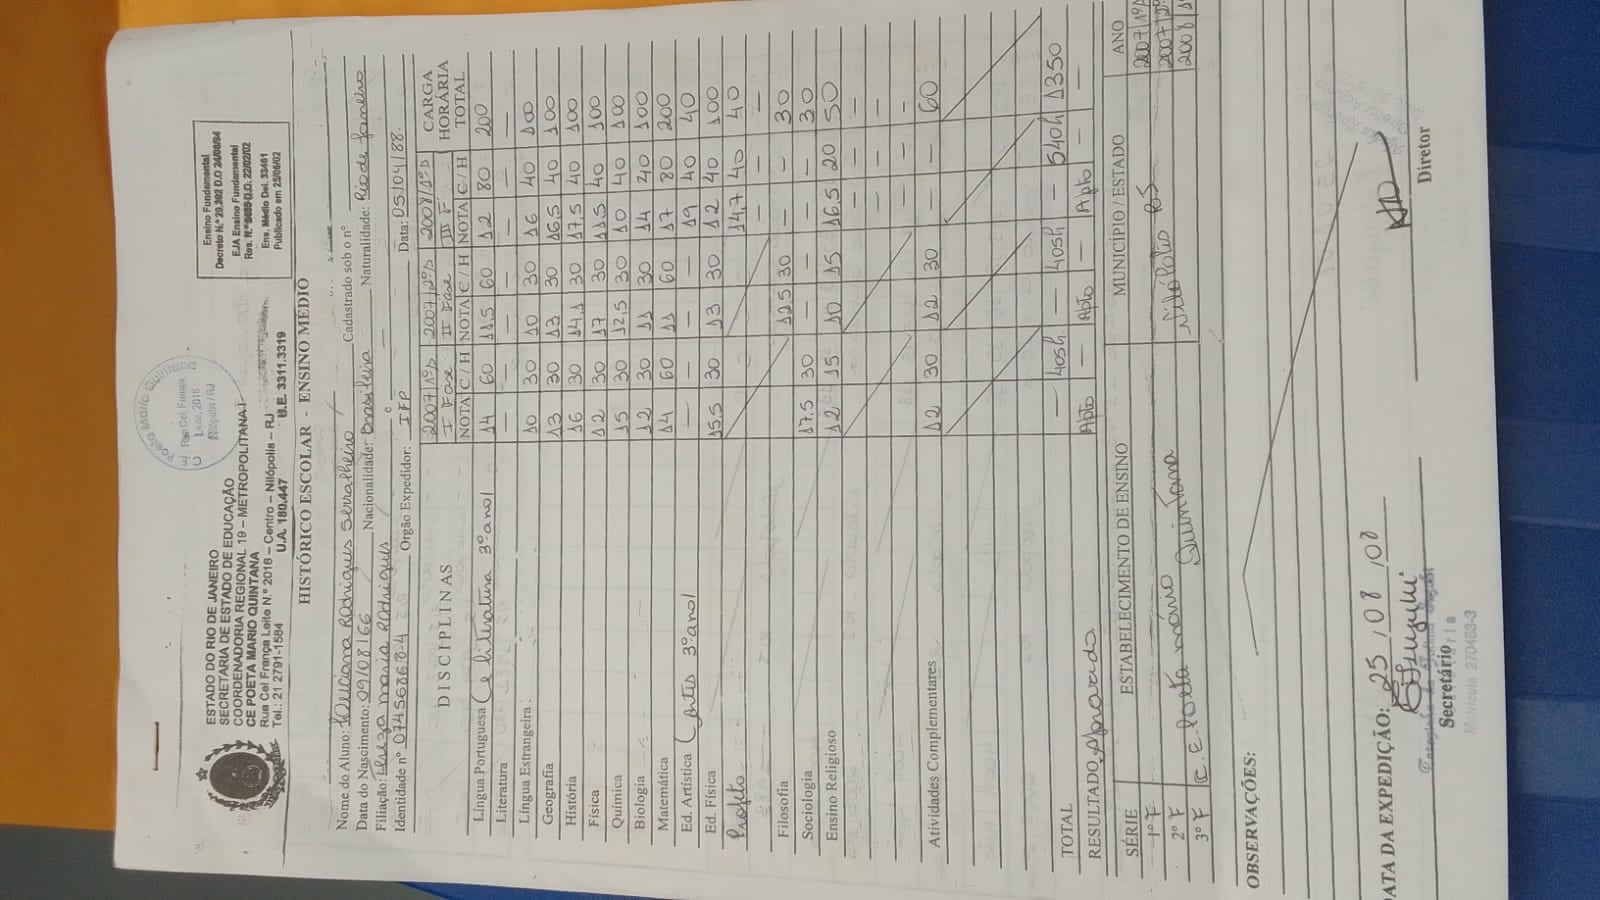 ESTADO DO RIO DE JANEIRO
SECRETARIA DE ESTADO DE EDUCAÇÃO
COORDENADORIA REGIONAL 19 – METROPOLITANA I
CE POETA MARIO QUINTANA
Rua Cel França Leite N.º 2016 – Centro – Nilópolis – RJ
Tel.: 21 2791-1584 U.A. 180.447 U.E. 3311.3319
Ensino Fundamental
Decreto N.º 20.382 D.O 24/08/94
EJA Ensino Fundamental
Ens. Médio Del. 33461
Publicado em 25/06/02
HISTÓRICO ESCOLAR - ENSINO MÉDIO
Nome do Aluno: Luciana Rodrigues Serralheiro Cadastrado sob o nº
Data do Nascimento: 09/08/66 Nacionalidade: Brasileira Naturalidade: Rio de Janeiro
Filiação: Maria Rodrigues
Identidade nº Orgão Expedidor: IFP Data: 05/04/88
DISCIPLINAS 2007/1ºS I Fase 2007/2ºS II Fase 2008/1ºS III F CARGA HORÁRIA TOTAL
NOTA C/H NOTA C/H NOTA C/H
Língua Portuguesa (e Literatura 3º ano) 14 60 11,5 60 12 80 200
Literatura — — — — — — —
Língua Estrangeira 10 30 10 30 16 40 100
Geografia 13 30 13 30 16,5 40 100
História 16 30 14,1 30 17,5 40 100
Física 12 30 17 30 11,5 40 100
Química 15 30 12,5 30 10 40 100
Biologia 12 30 11 30 14 40 100
Matemática 14 60 11 60 17 80 200
Ed. Artística (Artes 3º ano) — — — — 19 40 40
Ed. Física 15,5 30 13 30 12 40 100
Projeto 14,7 40 40
— — —
Filosofia 12,5 30 — — 30
Sociologia 17,5 30 — — — — 30
Ensino Religioso 12 15 10 15 16,5 20 50
— — —
— — —
— — —
Atividades Complementares 12 30 12 30 — — 60
TOTAL — 405h — 405h — 540h 1350
RESULTADO Aprovado Apto — Apto — Apto — —
SÉRIE ESTABELECIMENTO DE ENSINO MUNICÍPIO / ESTADO ANO
1º F 2007/1º
2º F 2007/2º
3º F C.E. Poeta Mário Quintana Nilópolis RJ 2008/1º
OBSERVAÇÕES:
DATA DA EXPEDIÇÃO: 25/08/08
Secretário
Matrícula 270468-3
Diretor